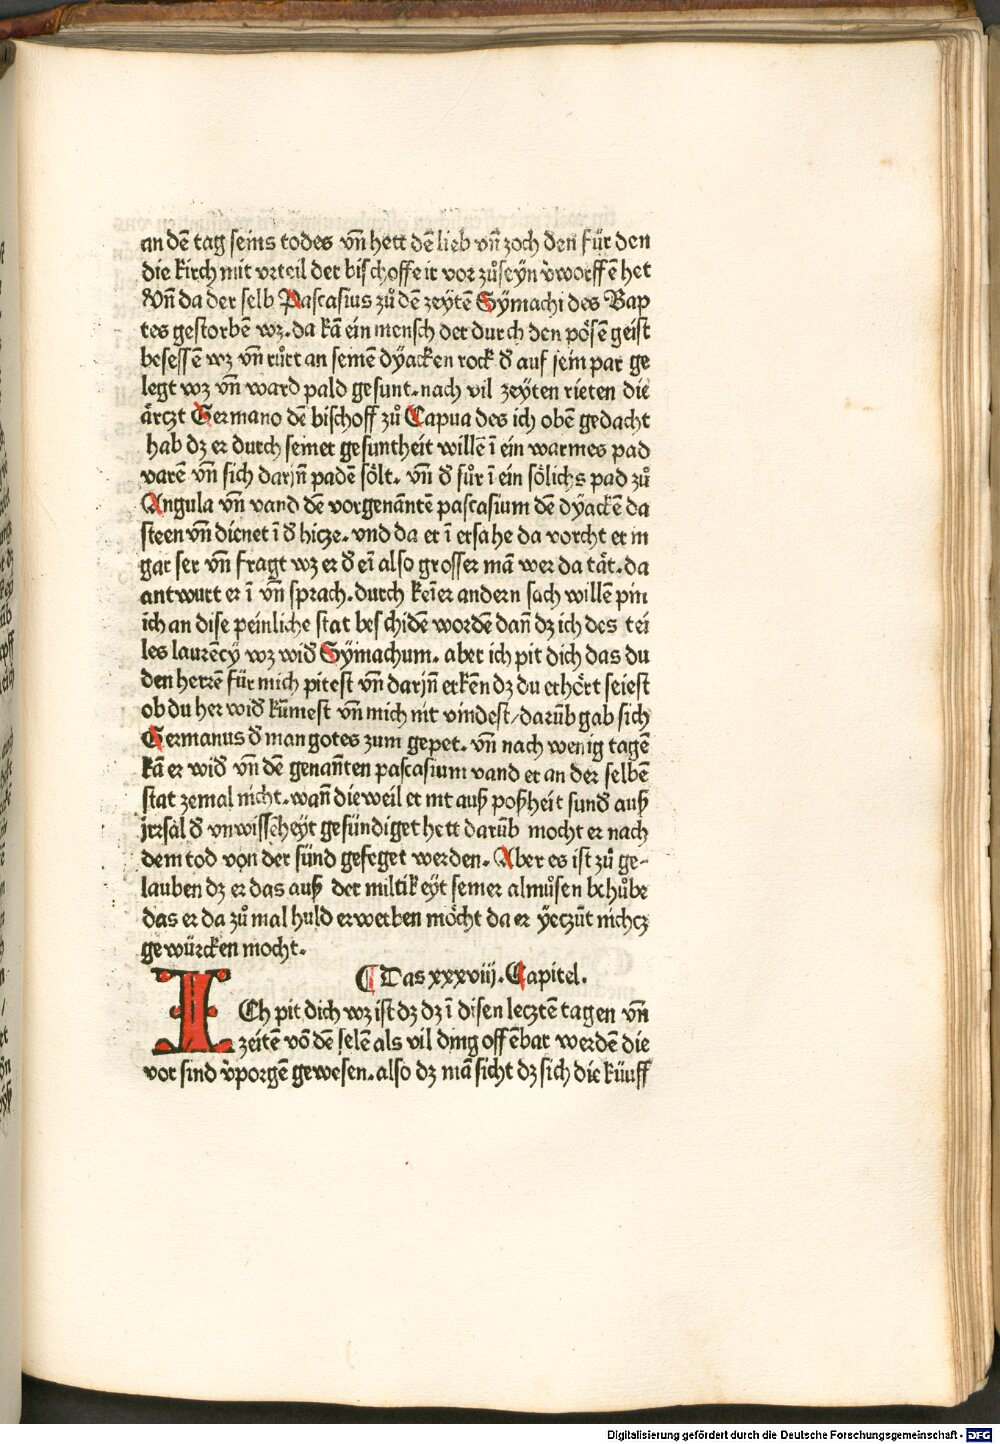 an dē tag seins todes vn̄ hett dē lieb vn̄ zoch den für den
die kirch mit vrteil der bischoffe ir vor zůseyn v̓worffē het
Vn̄ da der selb Pascasius zů dē zeytē Symachi des Bap
tes gestorbē wz. da kā ein mensch der durch den pösē geist
besessē wz vn̄ růrt an seinē dyacken rock d̄ auf sein par ge
legt wz vn̄ ward pald gesunt. nach vil zeyten rieten die
ärczt Germano dē bischoff zů Capua des ich obē gedacht
hab dz er durch seiner gesuntheit willē ī ein warmes pad
varē vn̄ sich darjn̄ padē sölt. vn̄ d̄ fůr ī ein sölichs pad zů
Angula vn̄ vand dē vorgenāntē pascasium dē dyackē da
steen vn̄ dienet ī d̄ hicze. vnd da er ī ersahe da vorcht er in
gar ser vn̄ fragt wz er d̄ eī also grosser mā wer da tät. da
antwurt er ī vn̄ sprach. durch keīer andern sach willē pin
ich an dise peinliche stat beschidē wordē dan̄ dz ich des tei
les laurēcy wz wid̄ Symachum. aber ich pit dich das du
den herrē für mich pitest vn̄ darjn̄ erkēn dz du erhört seiest
ob du her wid̄ kūmest vn̄ mich nit vindest/darūb gab sich
Germanus d̄ man gotes zum gepet. vn̄ nach wenig tagē
kā er wid̄ vn̄ dē genan̄ten pascasium vand er an der selbē
stat zemal nicht. wan̄ dieweil er nit auß poßheit sund̄ auß
jrrsal d̄ vnwissēheyt gesündiget hett darūb mocht er nach
dem tod von der sünd gefeget werden. Aber es ist zů ge-
lauben dz er das auß der miltikeyt seiner almůsen behůbe
das er da zů mal huld erwerben möcht da er yeczūt nichcz
gewürcken mocht.
¶ Das xxxviij. Capitel.
ICh pit dich wz ist dz dz ī disen lecztē tagen vn̄
zeitē vō dē selē als vil ding offēbar werdē die
vor sind v̓porgē gewesen. also dz mā sicht dz sich die küuff
Digitalisierung gefördert durch die Deutsche Forschungsgemeinschaft - DFG